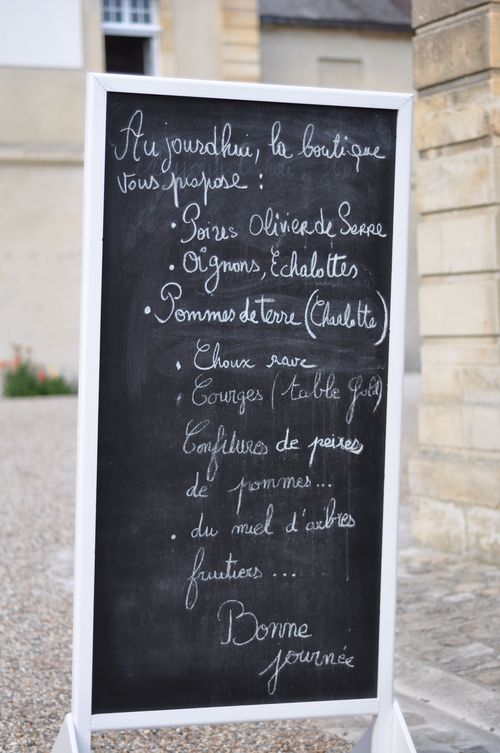 Aujourdhui, la boutique
vous propose :
• Poires Olivier de Serre
• Oignons, Echalottes
• Pommes de terre (Charlotte)
• Choux rave
• Courges (table Gold)
Confitures de poires
de pommes...
• du miel d'arbres
fruitiers ...
Bonne
journée